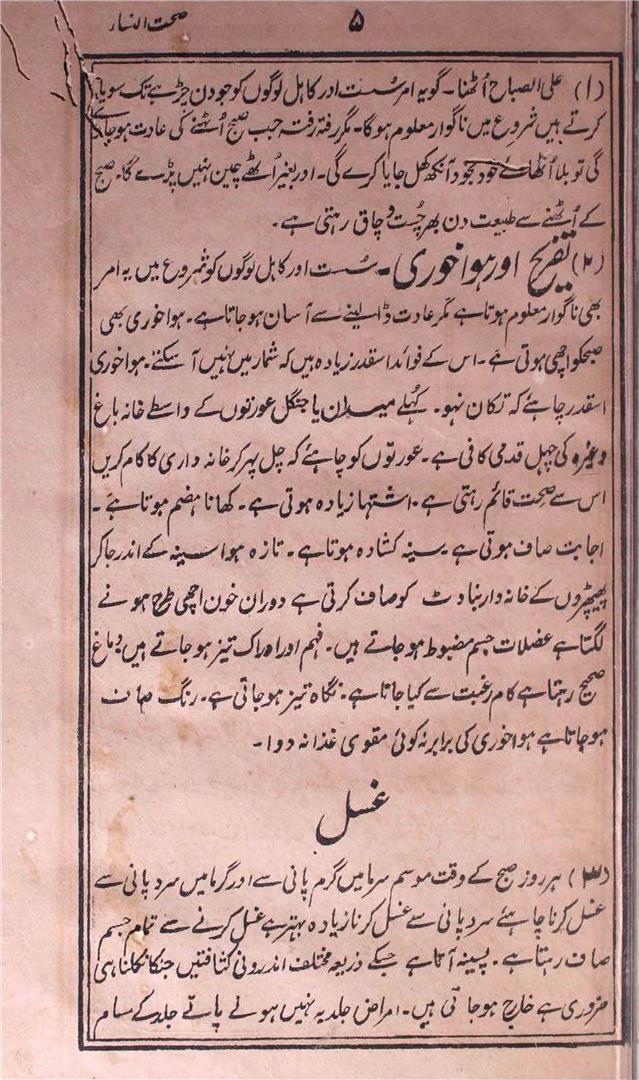 صحت النساء
۵
(۱) علی الصباح اُٹھنا۔ گو یہ امر سُست اور کاہل لوگوں کو جو دن چڑہے تک سویا
کرتے ہیں شروع میں ناگوار معلوم ہوگا۔ مگر رفتہ رفتہ جب صبح اُٹھنے کی عادت ہو جاوے
گی تو بلا اُٹھائے خود بخود آنکھ کھل جایا کرے گی۔ اور بغیر اُٹھے چین نہیں پڑے گا۔ صبح
کے اُٹھنے سے طبیعت دن بھر چُست و چاق رہتی ہے۔
(۲) تفریح اور ہوا خوری۔ سُست اور کاہل لوگوں کو شروع میں یہ امر
بھی ناگوار معلوم ہوتا ہے مگر عادت ڈالینے سے آسان ہو جاتا ہے۔ ہوا خوری بھی
صبحکو اچھی ہوتی ہے۔ اس کے فوائد اسقدر زیادہ ہیں کہ شمار میں نہیں آ سکتے۔ ہوا خوری
اسقدر چاہئے کہ تکان نہو۔ کُہلے میدان یا جنگل عورتوں کے واسطے خانہ باغ
وغیرہ کی چہل قدمی کافی ہے۔ عورتوں کو چاہئے کہ چل پہر کر خانہ داری کا کام کریں
اس سے صحت قائم رہتی ہے۔ اشتہا زیادہ ہوتی ہے۔ کھانا ہضم ہوتا ہے۔
اجابت صاف ہوتی ہے سینہ کشادہ ہوتا ہے۔ تازہ ہوا سینہ کے اندر جا کر
پھیپھڑوں کے خانہ دار بناوٹ کو صاف کرتی ہے دوران خون اچھی طرح ہونے
لگتا ہے عضلات جسم مضبوط ہو جاتے ہیں۔ فہم اور ادراک تیز ہو جاتے ہیں دماغ
صحیح رہتا ہے کام رغبت سے کیا جاتا ہے۔ نگاہ تیز ہو جاتی ہے۔ رنگ صاف
ہو جاتا ہے ہوا خوری کی برابر نہ کوئی مقوی غذا نہ دوا۔
غسل
(۳) ہر روز صبح کے وقت موسم سرما میں گرم پانی سے اور گرما میں سرد پانی سے
غسل کرنا چاہئے سرد پانی سے غسل کرنا زیادہ بہتر ہے غسل کرنے سے تمام جسم
صاف رہتا ہے۔ پسینہ آتا ہے جسکے ذریعہ مختلف اندرونی کثافتیں جنکا نکلنا ہی
ضروری ہے خارج ہو جاتی ہیں۔ امراض جلدیہ نہیں ہونے پاتے جلد کے مسام